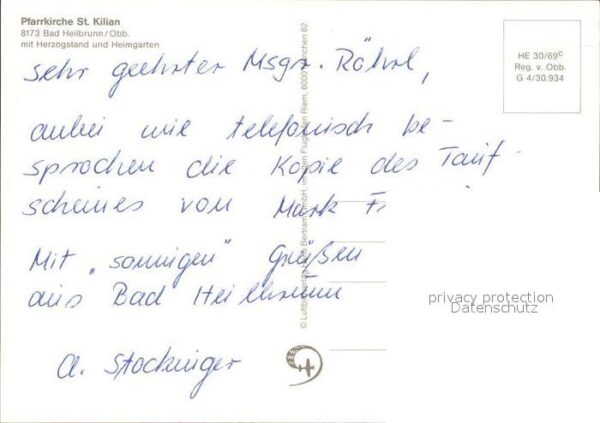 Pfarrkirche St. Kilian
8173 Bad Heilbrunn/Obb.
mit Herzogstand und Heimgarten
HE 30/69c
Reg. v. Obb.
G 4/30.934
sehr geehrter Msgr. Röhrl,
anbei wie telefonisch be-
sprochen die Kopie des Tauf-
scheines von Mark
Mit "sonnigen" Grüßen
aus Bad Heilbrunn
A. Stockinger
privacy protection
Datenschutz